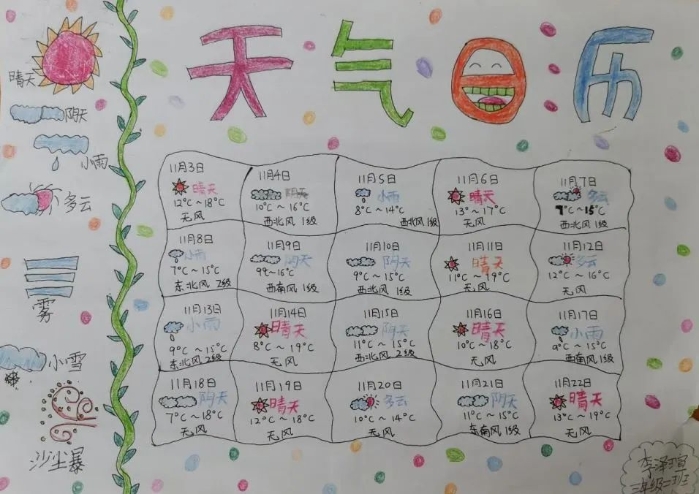 天气日历
晴天
阴天
小雨
多云
雾
小雪
沙尘暴
11月3日
晴天
12°C~18°C
无风
11月4日
阴天
10°C~16°C
西北风1级
11月5日
小雨
8°C~14°C
西北风1级
11月6日
晴天
13°~17°C
无风
11月7日
多云
7°C~15°C
西北风1级
11月8日
小雨
7°C~15°C
东北风2级
11月9日
阴天
西南风1级
11月10日
阴天
9°C~15°C
西北风1级
11月11日
晴天
11°C~19°C
无风
11月12日
多云
12°C~16°C
无风
11月13日
小雨
9°C~15°C
东北风2级
11月14日
晴天
8°C~19°C
无风
11月15日
阴天
11°C~15°C
西北风2级
11月16日
晴天
10°C~18°C
无风
11月17日
小雨
9°C~15°C
西南风1级
11月18日
阴天
7°C~18°C
无风
11月19日
晴天
12°C~18°C
无风
11月20日
多云
10°C~14°C
无风
11月21日
阴天
11°C~15°C
东南风1级
11月22日
晴天
13°C~19°C
无风
三年级二班